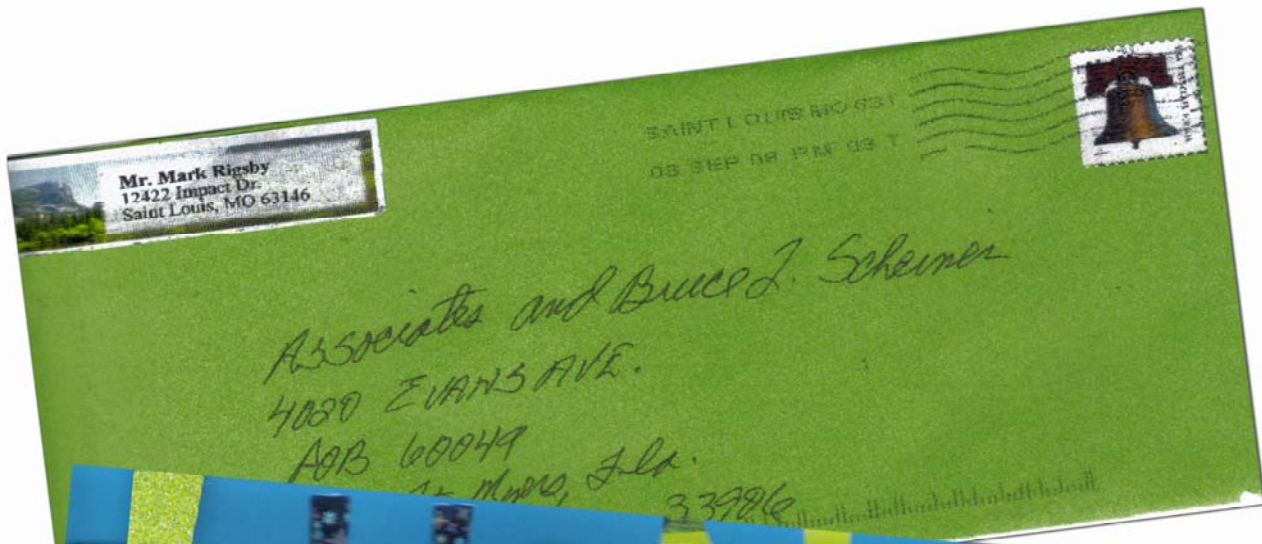 Mr. Mark Rigsby
12422 Impact Dr.
Saint Louis, MO 63146
SAINT LOUIS MO 631
08 SEP 08 PM
Associates and Bruce L. Scheiner
4020 EVANS AVE.
POB 60049
Ft Myers, Fla.
33906